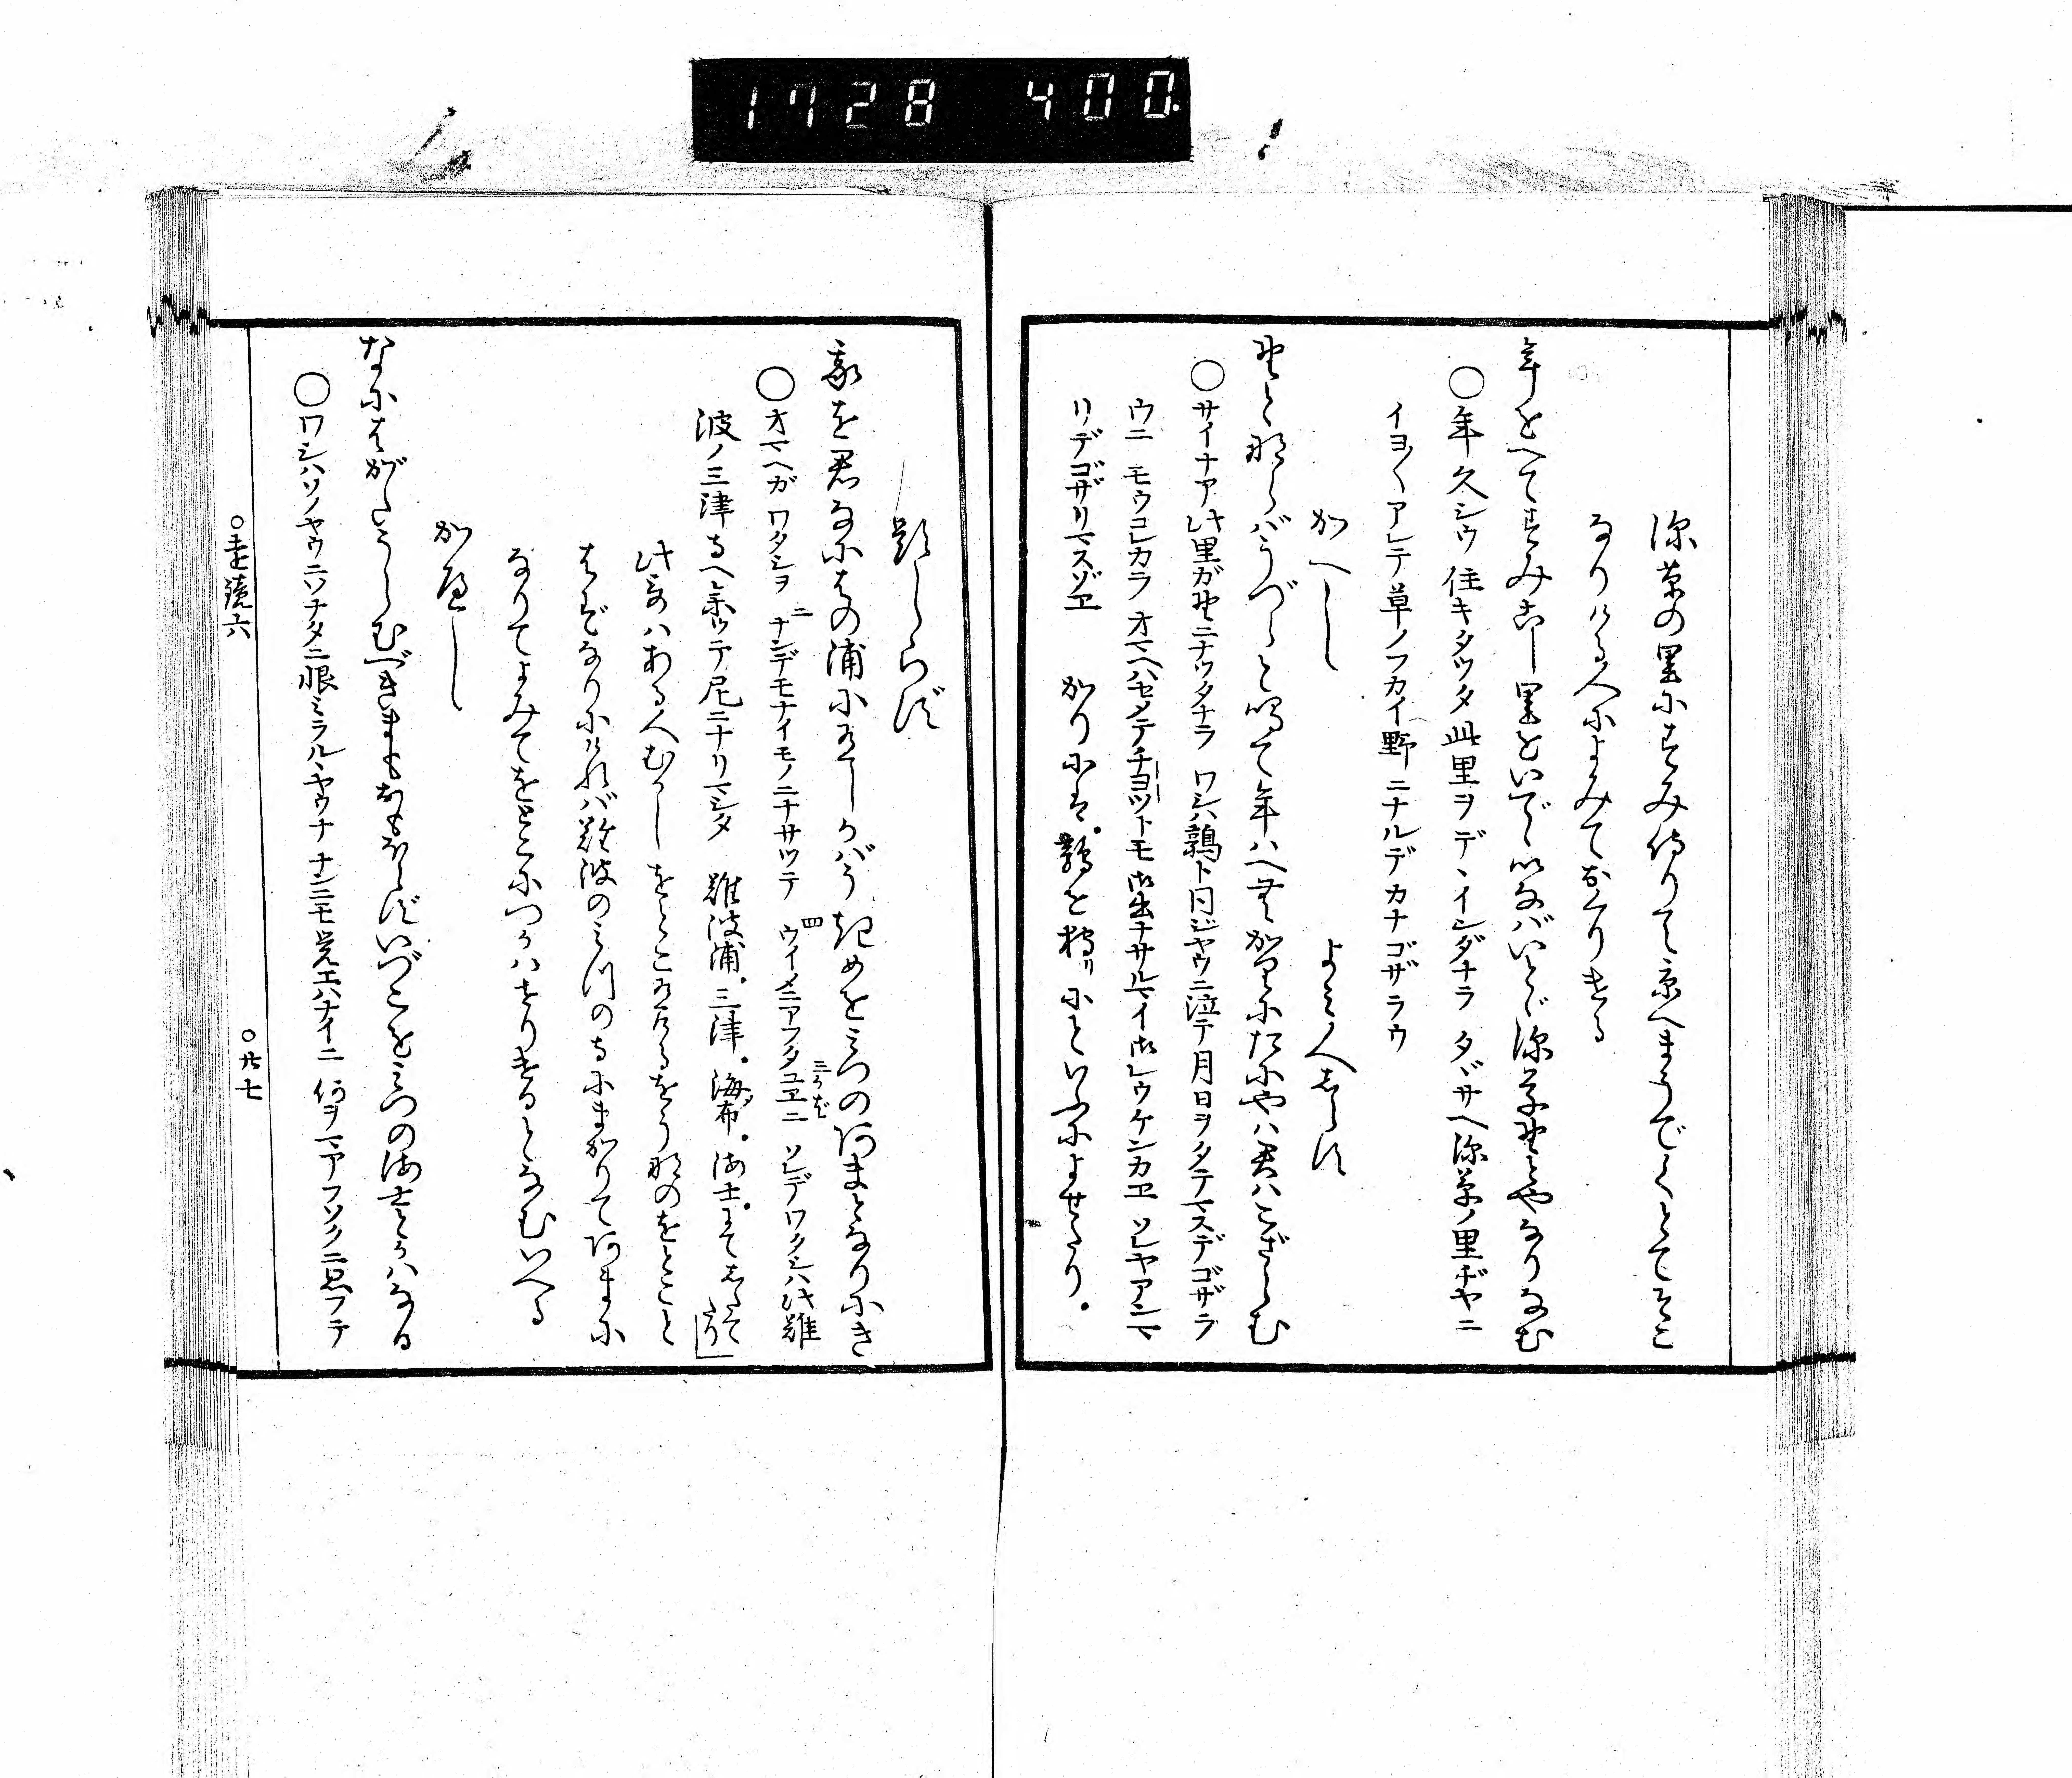 1728 400
深草の里にすみ侍りて京へまうでくとてそこ
なりける人によみておくりける
年をへてすみこし里をいでゝいなばいとゞ深草野とやなりなむ
○年久シウ住キタツタ此里ヲデヽインダナラ タヾサヘ深草ノ里ヂヤニ
イヨ〳〵アレテ草ノフカイ野ニナルデカナゴザラウ
かへし よみ人しらず
野とならばうづらと鳴て年はへむかりにだにやは君はこざらむ
○サイナア此里ガ野ニナツタナラ ワシハ鶉ト同ジヤウニ泣テ月日ヲタテマスデゴザラ
ウニ モウコレカラ オマヘハセメテチヨツトモ御出ナサルマイ御レウケンカヱ ソレヤアンマ
リデゴザリマスゾヱ かりには。鶉を狩リにといふによせたり。
題しらず
我を君なにはの浦に有しかばうきめをみつのあまとなりにき
○オマヘガ ワタシヲ ニナンデモナイモノニナサツテ 四ウイメニアフタユヱニ 三うら ソレデワタシハ此難
波ノ三津寺ヘ参ツテ尼ニナリマシタ 難波浦。三津。海布。海士。まてしたて
たり
此哥はある人むかしをとこ有けるをうなのをとこと
はずなりにければ難波のみつの寺にまかりてあまに
なりてよみてをとこにつかはせりけるとなむいへる
かへし
なにはがたうらむべきまもおもほえずいづこをみつの海士とかはなる
○ワシハソノヤウニソナタニ恨ミラルヽヤウナ ナンニモ覚エハナイニ 何ヲマアフソクニ思フテ
○遠鏡六
○廿七